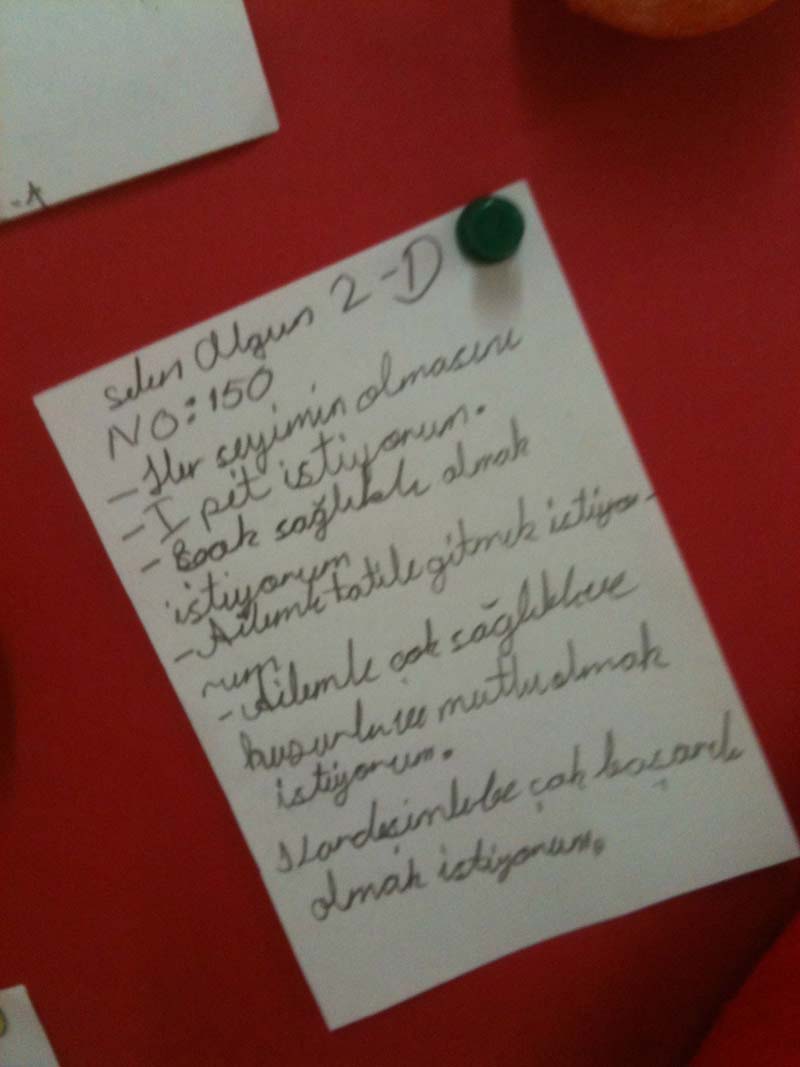 selen Olgun 2-D
NO: 150
- Her seyimin olmasını
- I pet istiyorum.
- çook sağlıklı olmak
istiyorum
- Ailemle tatile gitmek istiyo-
rum
- Ailemle çok sağlıklı ve
huzurlu ve mutlu olmak
istiyorum.
Kardeşimle be çok başarılı
olmak istiyorum.